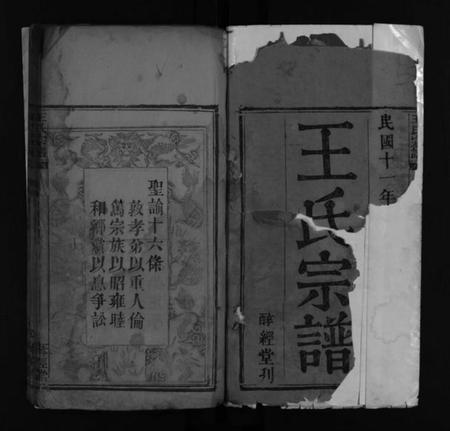 民國十一年
王氏宗譜
醉經堂刋
聖諭十六條
敦孝弟以重人倫
篤宗族以昭雍睦
和鄉黨以息爭訟